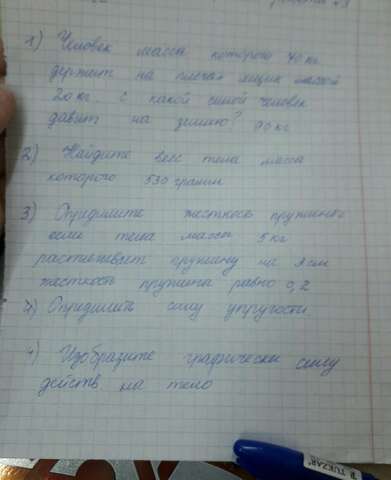 1) Человек масса которого 70 кг
держит на плечах ящик массой
20 кг. с какой силой человек
давит на землю? 90 кг
2) Найдите вес тела масса
которого 530 грамм
3) Определите жесткость пружины
если тела массы 5 кг
растягивает пружину на см
жесткость пружина равно 0,2
Определить силу упругости.
4) Изобразите графически силу
действ на тело
TUKZAR